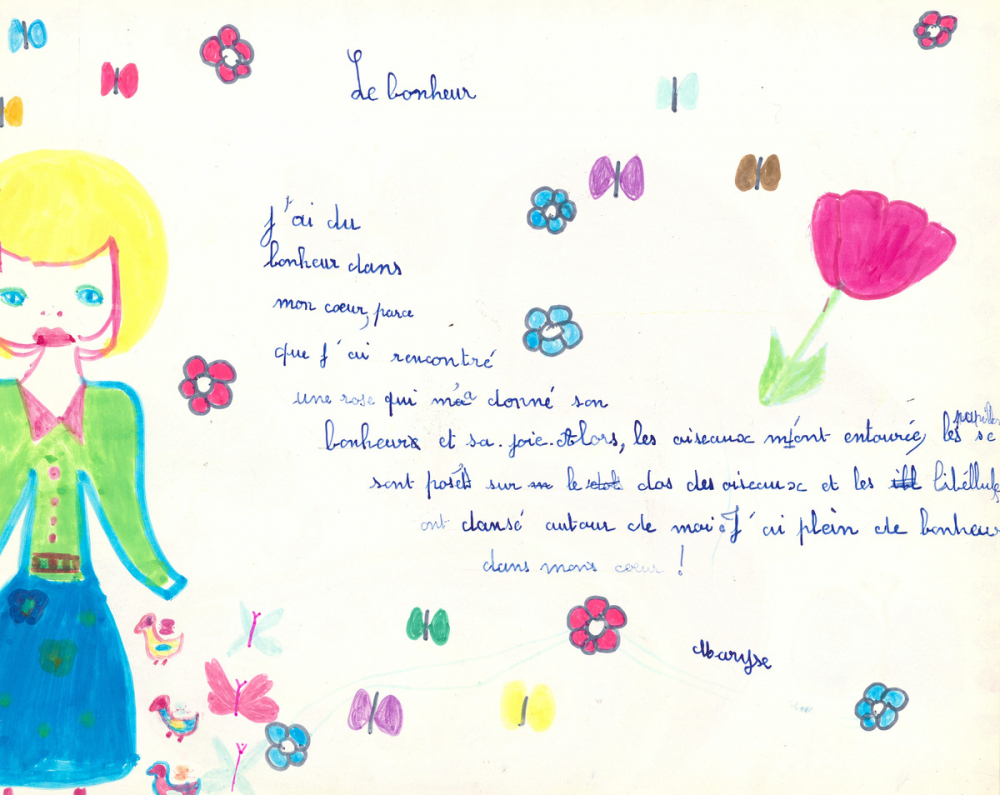 Le bonheur
J'ai du
bonheur dans
mon coeur, parce
que j'ai rencontré
une rose qui m'a donné son
bonheur et sa joie. Alors, les oiseaux m'ont entourée, les papillons se
sont posés sur le dos des oiseaux et les libéllules
ont dansé autour de moi. J'ai plein de bonheur
dans mons coeur !
Maryse